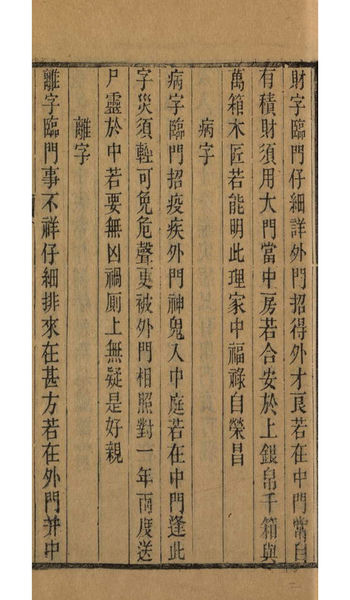 財字臨門仔細詳外門招得外才良若在中門常自
有積財須用大門當中房若合安於上銀帛千箱與
萬箱木匠若能明此理家中福祿自榮昌
病字
病字臨門招疫疾外門神鬼入中庭若在中門逢此
字災須輕可免危聲更被外門相照對一年兩度送
尸靈於中若要無凶禍厠上無疑是好親
離字
離字臨門事不祥仔細排來在甚方若在外門并中